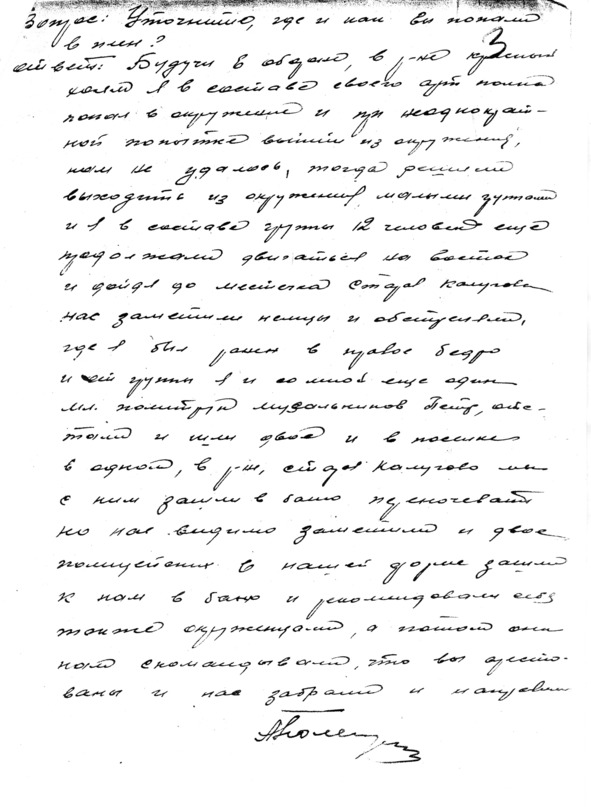 Вопрос: Уточните, где и как вы попали
в плен?
3
Ответ: Будучи в обороне, в р-не красный
холм я в составе своего арт полка
попал в окружение и при неоднократ-
ной попытке выйти из окружения,
нам не удалось, тогда решили
выходить из окружения малыми группами
и я в составе группы 12 человек еще
продолжали двигаться на восток
и дойдя до местечка Старое Калугово
нас заметили немцы и обстреляли,
где я был ранен в правое бедро
и от группы я и со мной еще один
мл. политрук Петр, отс-
тали и шли двое и в поселке
в одном, в р-не, старое Калугово мы
с ним зашли в баню переночевать
но нас видимо заметили и двое
полицейских в нашей форме зашли
к нам в баню и рекомендовали себя
также окруженцами, а потом они
нам скомандывали, что вы аресто-
ваны и нас забрали и направили